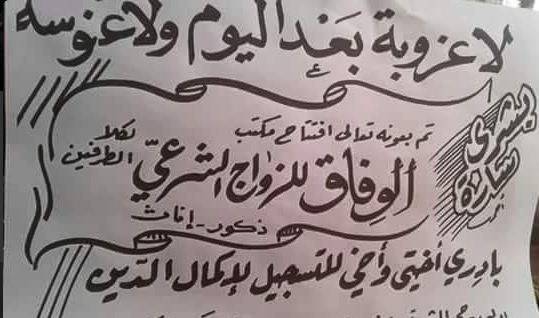 لا عزوبة بَعْد اليوم ولا عنوسة
بشرى سارة
تم بعونه تعالى افتتاح مكتب
لكلا الطرفين
الوِفاق للزواج الشرعيّ
ذكور - إناث
بادري أختي وأخي للتسجيل لإكمال الدّين